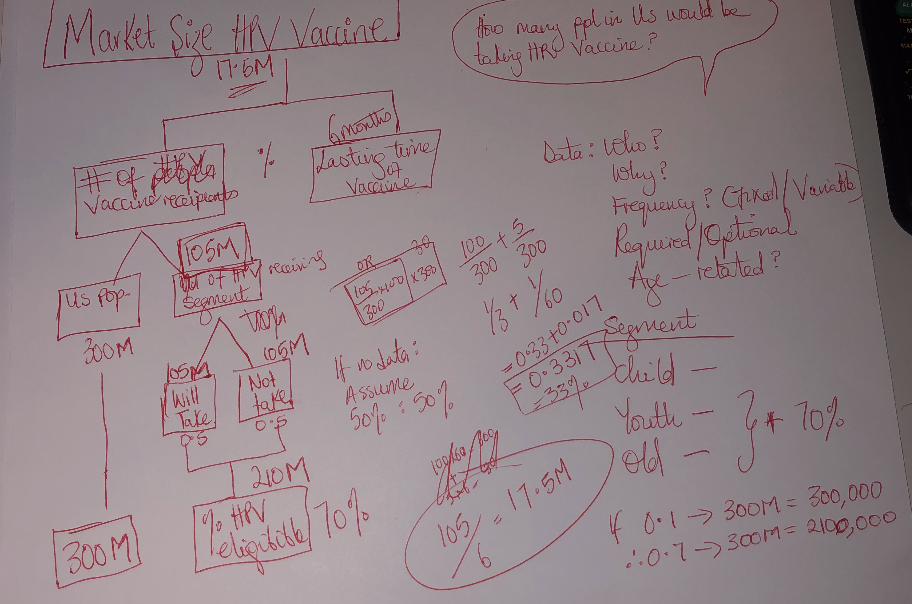 Market Size HPV Vaccine
17.5M
How many ppl in US would be
taking HPV Vaccine?
# of people
Vaccine receipients
%
6 months
Lasting time
of
Vaccine
Data: Who?
Why?
Frequency? (Fixed/Variable)
Required/Optional
Age-related?
US pop-
300M
105M
of HPV receiving
Segment
100%
105M
Will
Take
0.5
105M
Not
take
0.5
210M
% HPV
eligitible
70%
300M
If no data:
Assume
50% : 50%
OR
105 x 100
300
x 300
100 + 5
300 300
1/3 + 1/60
= 0.33 + 0.017
= 0.3317
= 33%
Segment
Child -
Youth -
Old -
} * 70%
105/6 = 17.5M
If 0.1 → 300M = 300,000
∴ 0.7 → 300M = 2100,000